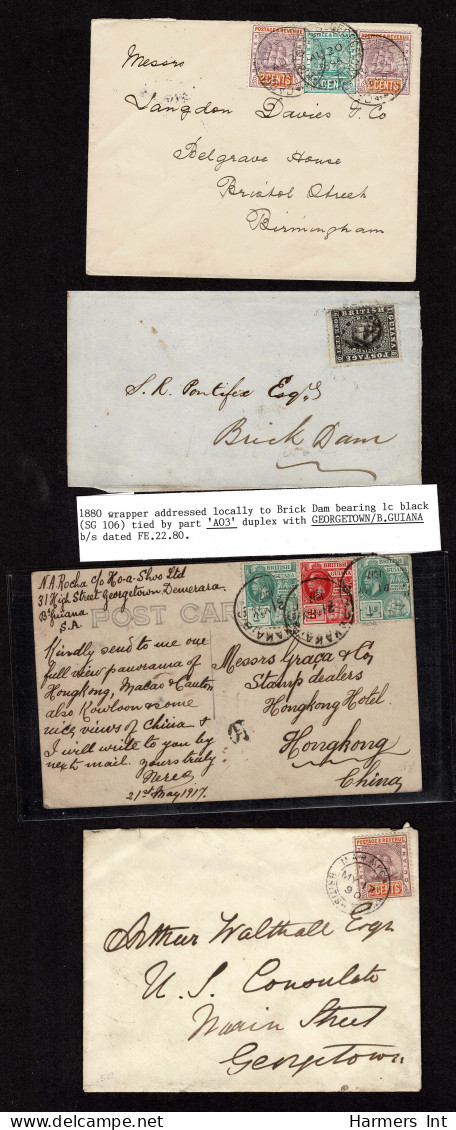 POSTAGE & REVENUE
POSTAGE & REVENUE
POSTAGE & REVENUE
2 CENTS
CENT
2 CENTS
Messrs
Langdon Davies & Co
Belgrave House
Bristol Street
Birmingham
BRITISH
GUIANA
POSTAGE
S. R. Pontifex Esqr
Brick Dam
1880 wrapper addressed locally to Brick Dam bearing 1c black
(SG 106) tied by part 'A03' duplex with GEORGETOWN/B.GUIANA
b/s dated FE.22.80.
N.A. Rocha c/o Ho-a-Shoo Ltd
31 High Street Georgetown Demerara
B'Guiana
S.A
POST CARD
BRITISH
BRITISH
BRITISH
Kindly send to me one
full view panorama of
Hongkong, Macao & Canton
also Kowloon & some
nice views of China &
I will write to you by
next mail. Yours truly
21st May 1917.
Messrs Graça & Co,
Stamp dealers
Hongkong Hotel
Hongkong
China
POSTAGE & REVENUE
2 CENTS
MY
90
BRITISH
Arthur Walthall Esqr
U. S. Consulate
Main Street
Georgetown
Harmers Int